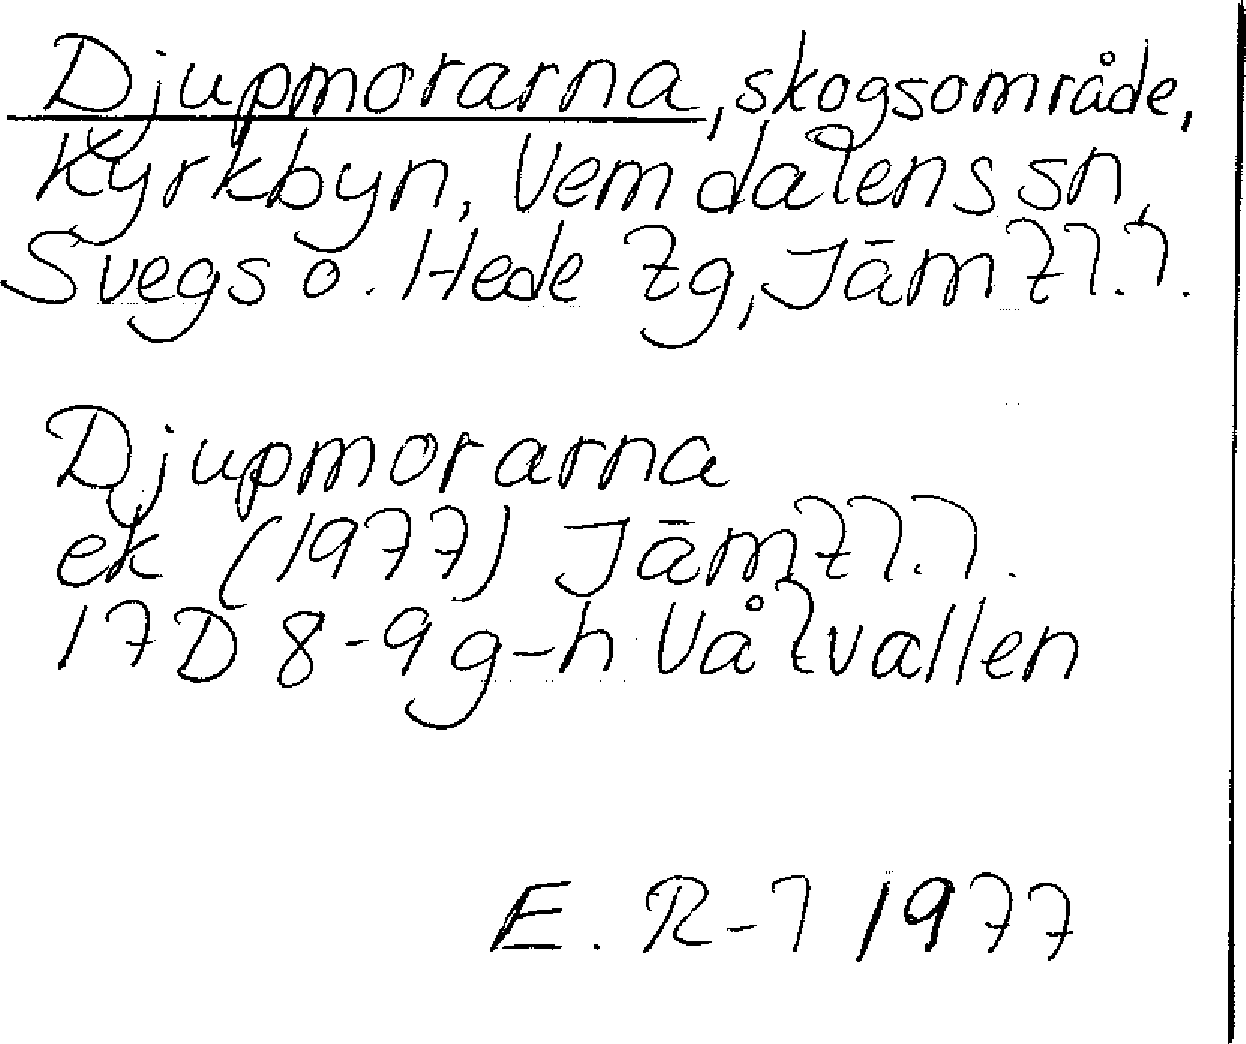 Djupmorarna, skogsområde,
Kyrkbyn, Vemdalens sn,
Svegs o. Hede tg, Jämtl. l.
Djupmorarna
ek (1977) Jämtl. l.
17D 8-9 g-h Vålvallen
E. R-l 1977